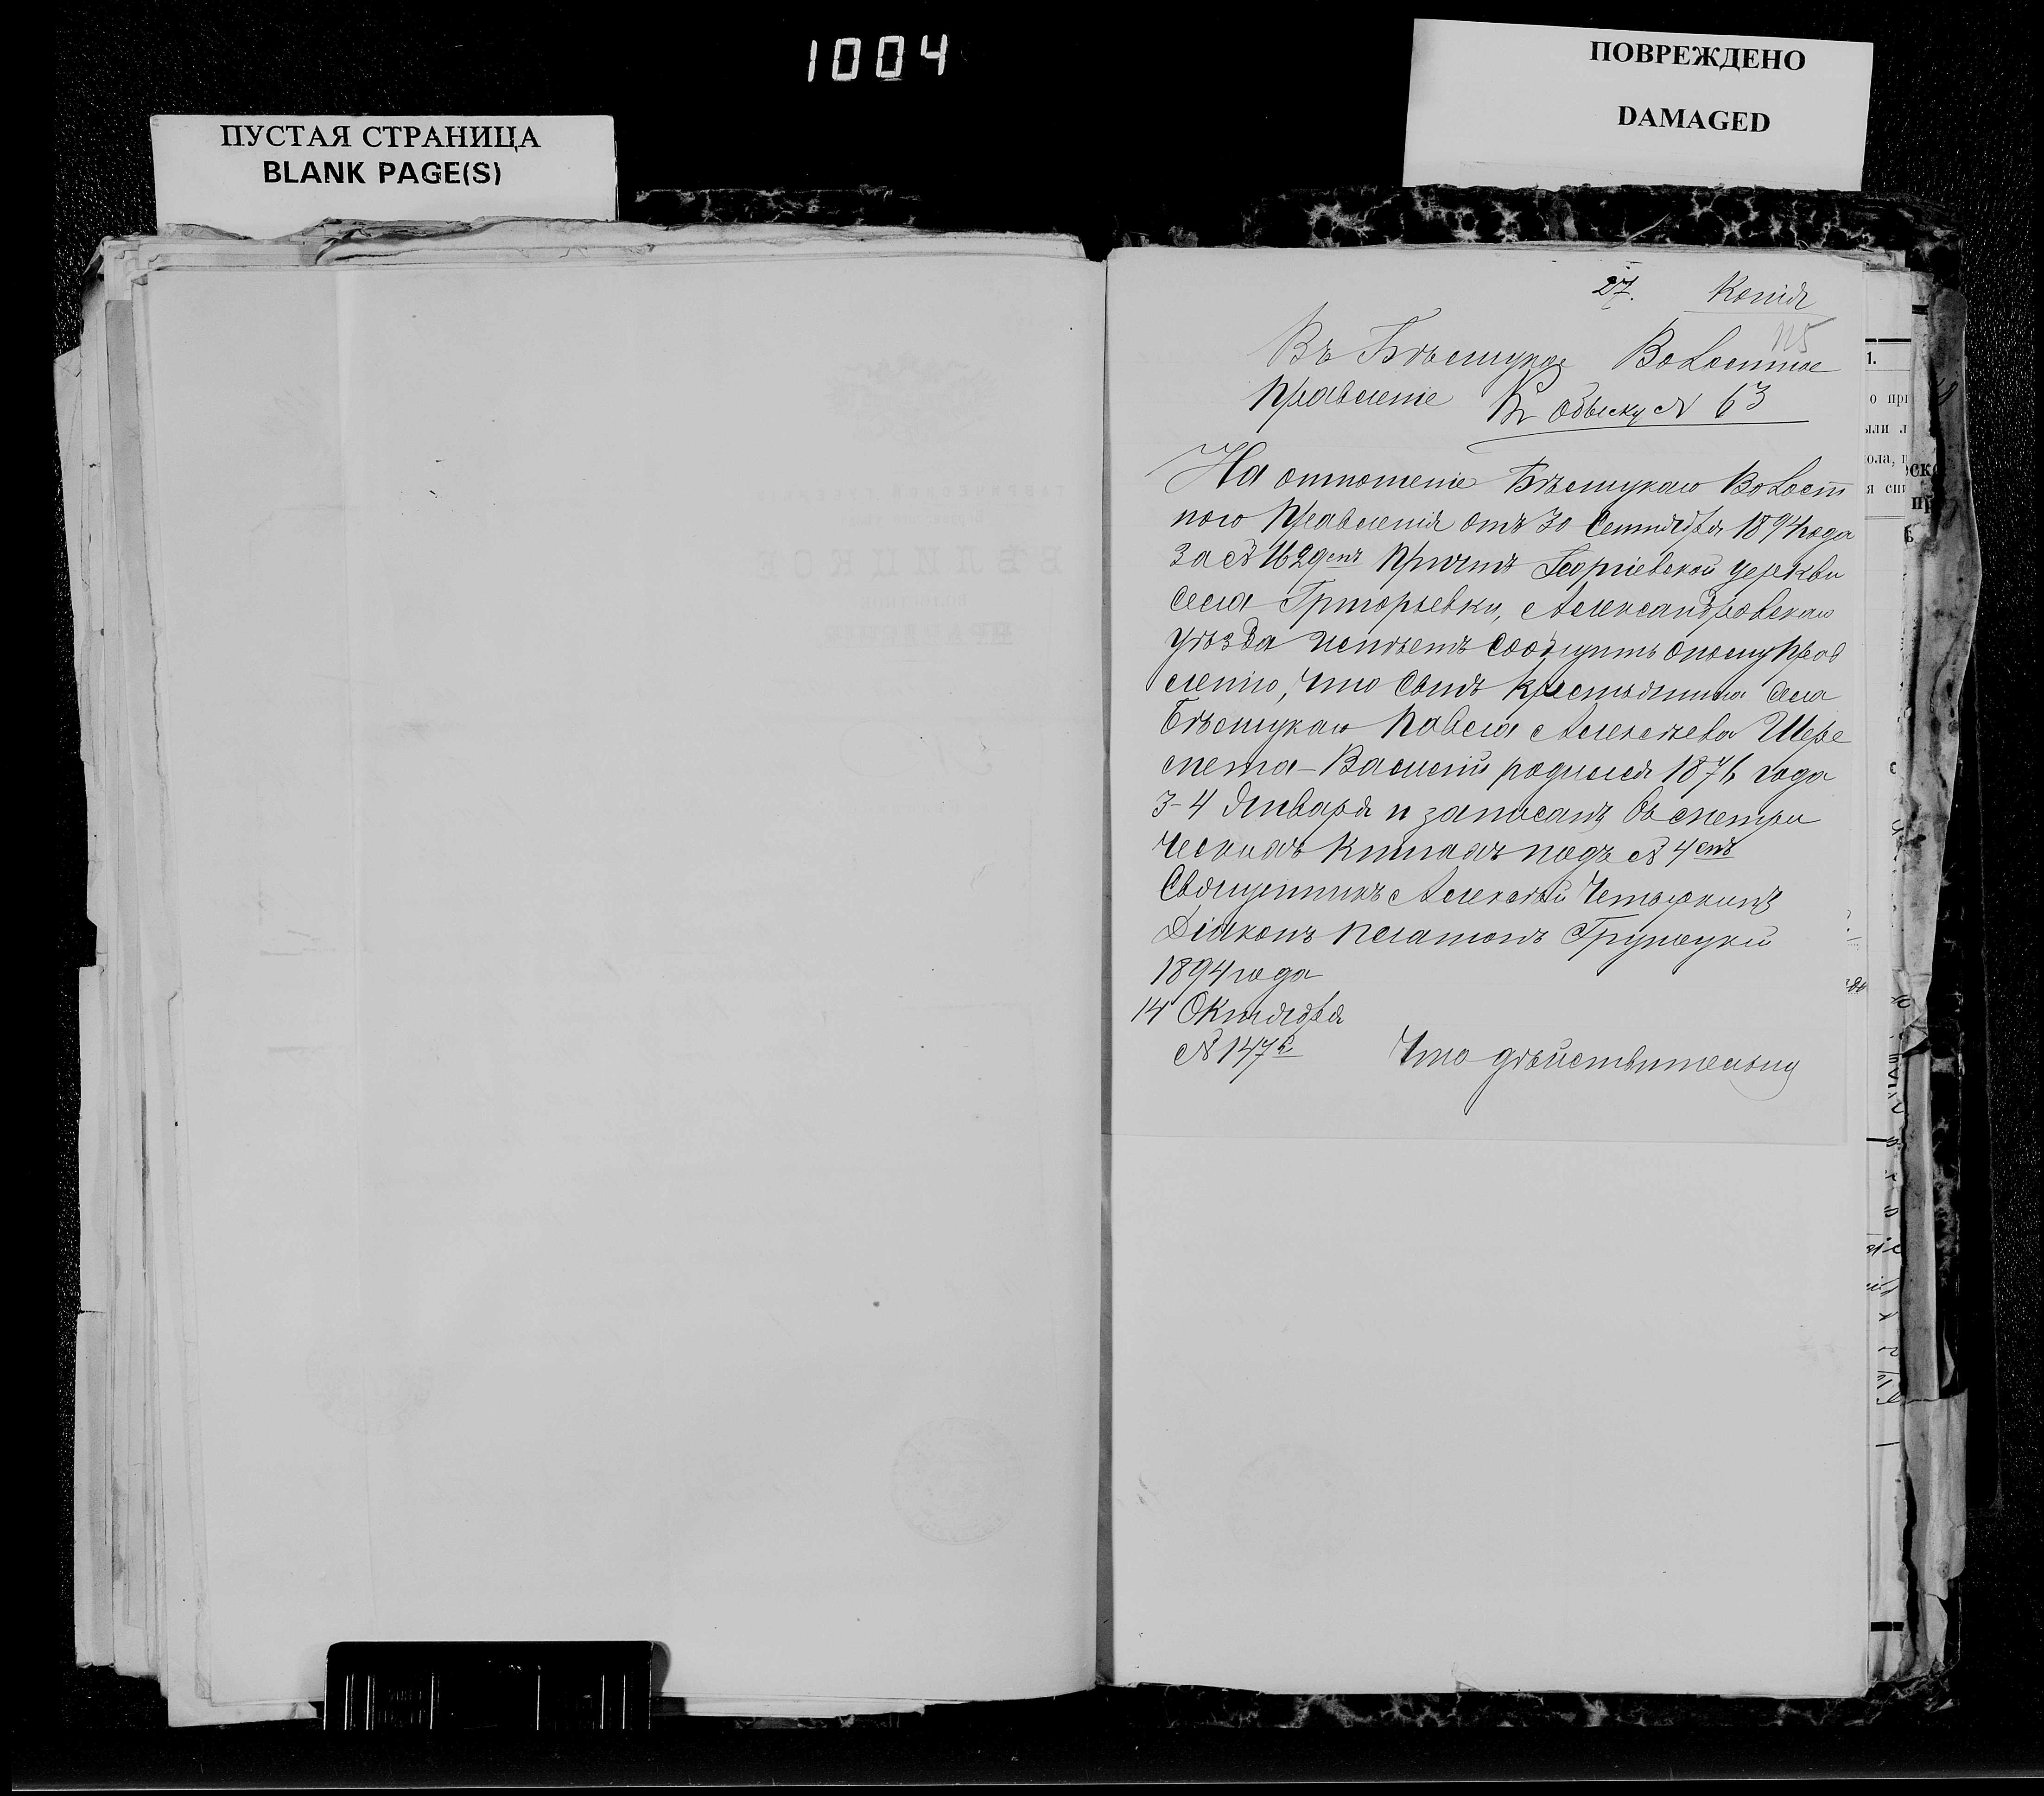 1004
ПОВРЕЖДЕНО
DAMAGED
ПУСТАЯ СТРАНИЦА
BLANK PAGE(S)
27. Копія
115
Въ Бѣлицкое Волостное
Правленіе Къ обыску № 63
На отношеніе Бѣлицкаго Волост
ного Правленія отъ 30 Сентября 1894 года
за № 1629емъ Причтъ Георгіевской церкви
села Григорьевки, Александровскаго
уѣзда имѣетъ сообщить оному Прав
ленію, что сынъ крестьянина села
Бѣлицкаго Павла Алексѣева Шере
мета – Василій родился 1876 года
3–4 Января и записанъ въ метри
ческихъ книгахъ подъ № 4емъ
Священникъ Алексѣй
Діаконъ Платонъ
1894 года
14 Октября
№ 147й Что дѣйствительно